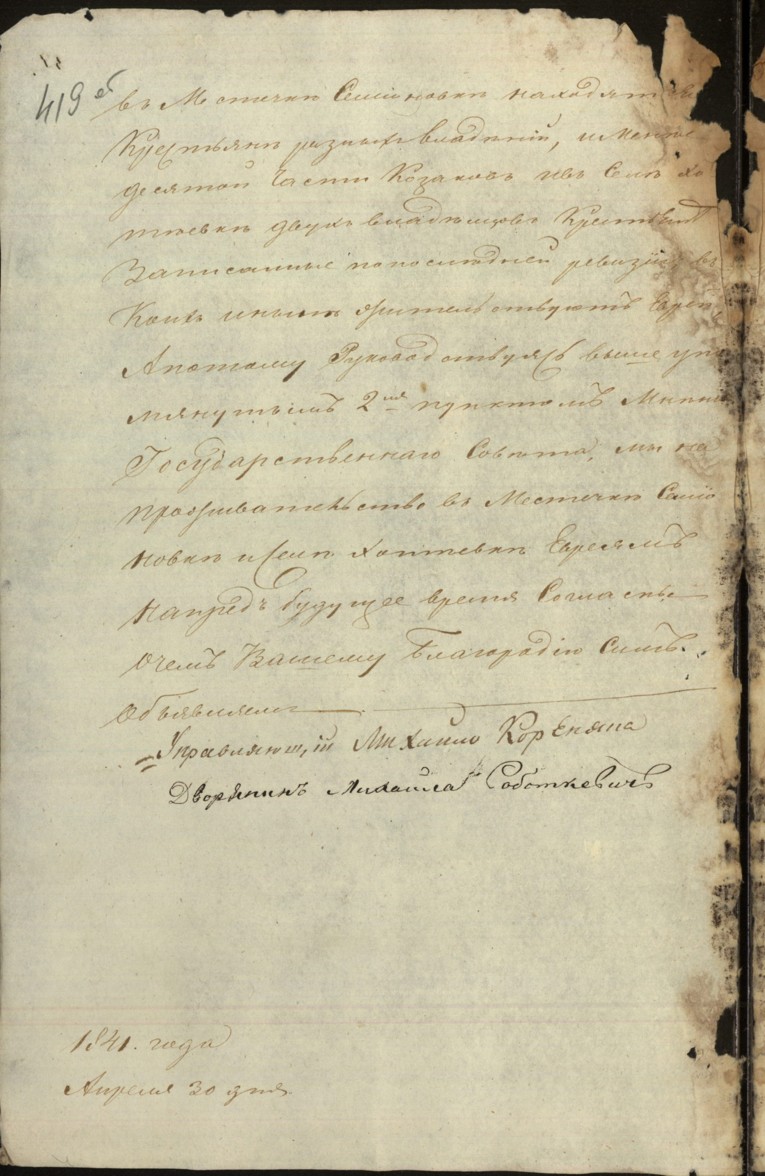 419 об
въ Местечкѣ Семіоновкѣ находятся
Крестьянъ разныхъ владѣній, и менѣе
десятой Части Козаковъ ивъ Селѣ Хо
тіевкѣ двухъ владѣльцовъ Крестьянъ
Записанные попоследней ревизіи въ
Коихъ жительствуютъ Евреи,
Апотому Руководствуясь выше упо
мянутымъ 2мъ пунктомъ Мнѣнія
Государственнаго Совѣта, мы на
проживательство въ Местечкѣ Семіо
новкѣ иселѣ Хотіевкѣ Евреямъ
напредъ будущее время Согласны
Очемъ Вашему Благородію Симъ
Объявляемъ
Управляющій Михайло Кореняка
Дворянинъ Михайла Соботкевичъ
1841. года
Апреля 30 дня